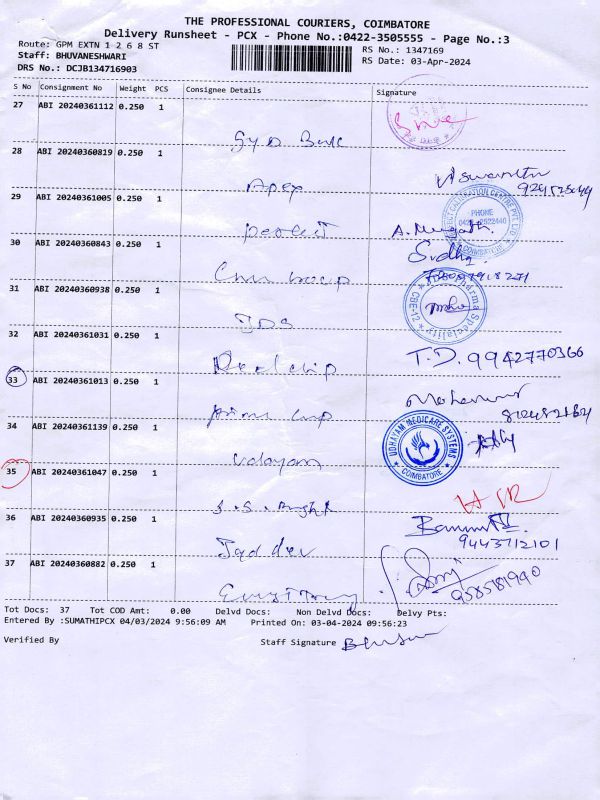 THE PROFESSIONAL COURIERS, COIMBATORE
Delivery Runsheet - PCX - Phone No.:0422-3505555 - Page No.:3
Route: GPM EXTN 1 2 6 8 ST
RS No.: 1347169
Staff: BHUVANESHWARI
RS Date: 03-Apr-2024
DRS No.: DCJB134716903
S No Consignment No Weight PCS Consignee Details Signature
27 ABI 20240361112 0.250 1
28 ABI 20240360819 0.250 1
Apex Aswanth
29 ABI 20240361005 0.250 1
PHONE
COIMBATORE
perfect A.
30 ABI 20240360843 0.250 1
Sudha
31 ABI 20240360938 0.250 1
Pharma Speciality
CBE-12
TDS
32 ABI 20240361031 0.250 1
T.D. 9942770366
33 ABI 20240361013 0.250 1
34 ABI 20240361139 0.250 1
UDHAYAM MEDICARE SYSTEMS
COIMBATORE
Udayam
35 ABI 20240361047 0.250 1
S.S.
36 ABI 20240360935 0.250 1
9443712101
37 ABI 20240360882 0.250 1
9585781940
Tot Docs: 37 Tot COD Amt: 0.00 Delvd Docs: Non Delvd Docs: Delvy Pts:
Entered By :SUMATHIPCX 04/03/2024 9:56:09 AM Printed On: 03-04-2024 09:56:23
Verified By Staff Signature